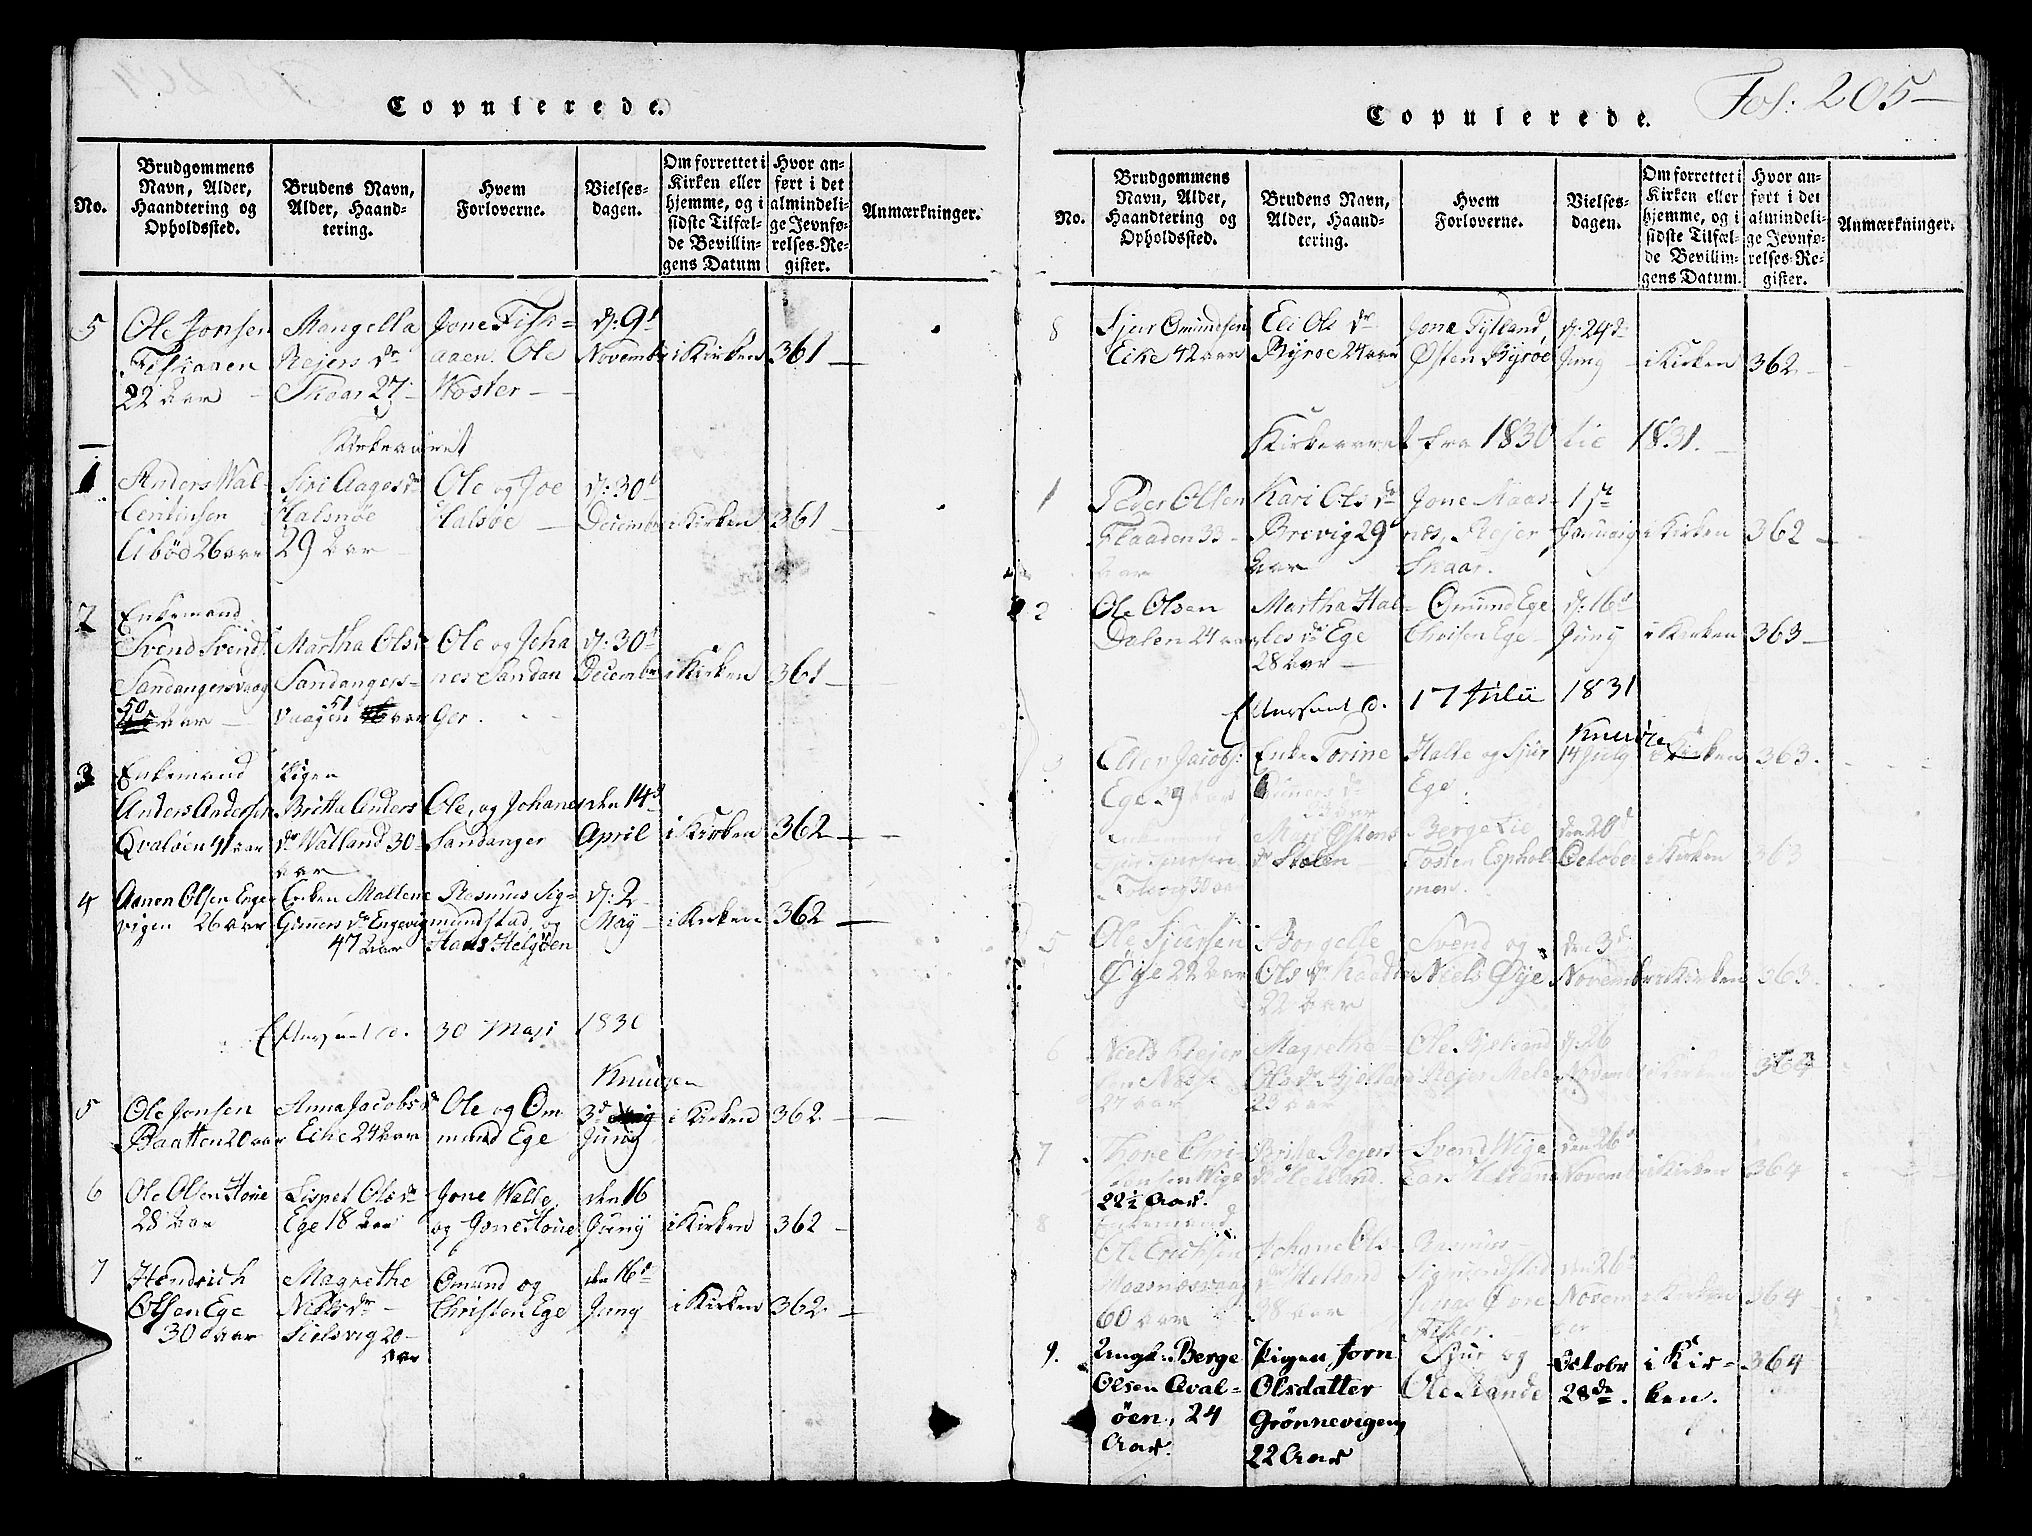 Copulerede.
No.
Brudgommens
Navn, Alder,
Haandtering og
Opholdssted.
Brudens Navn,
Alder, Haand-
tering.
Hvem
Forloverne.
Vielses-
dagen.
Om forrettet i
Kirken eller
hjemme, og i
sidste Tilfæl-
de Bevillin-
gens Datum
Hvor an-
ført i det
almindeli-
ge Jevnfø-
relses-Re-
gister.
Anmærkninger.
5
Ole Jonsen
22 Aar
Mangella
Rejers dr
27
Jone
Ole
d: 9d
Novembr
i Kirken
361
Kirkeaaret
1
Anders
26 aar
Siri Aages dr
Halsnöe
29 Aar
Ole og Joe
Halsöe
d: 30d
Decembr
i Kirken
361
2
Enkemand
Svend Svends
50
Aar
Martha Ols dr
Sandanger-
vaagen 51 aar
Ole og Joha
nes Sandan
ger.
d: 30d
Decembr
i Kirken
361
3
Enkemand
Anders Andersen
Qvalöen 41 aar
Pigen
Britta Anders
dr Watland 30
aar
Ole, og Johanes
Sandanger
den 14d
April
i Kirken
362
4
Aanen Olsen Enge
vigen 26 aar
Enken Mallene
Gunners dr Engevig
47 aar
Rasmus Sig-
mundstad, og
Hans Helgöen
d: 2
May
i Kirken
362
Efterseet d. 30 Maji 1830
Knudsen
5
Ole Jonsen
Baatten 20 aar
Anna Jacobs dr
Eike 24 aar
Ole og Om
mund Ege
3d
Juny
i Kirken
362
6
Ole Olsen
28 Aar
Lispet Ols dr
Ege 18 Aar
Jone Walle,
og Jone
den 16
Juny
i Kirken
362
7
Hendrich
Olsen Ege
30 aar
Magrethe
Niels dr
20
aar
Omund og
Christen Ege
den 16d
Juny
i Kirken
362
Fol: 205
Copulerede.
No.
Brudgommens
Navn, Alder,
Haandtering og
Opholdssted.
Brudens Navn,
Alder, Haand-
tering.
Hvem
Forloverne.
Vielses-
dagen.
Om forrettet i
Kirken eller
hjemme, og i
sidste Tilfæl-
de Bevillin-
gens Datum.
Hvor an-
ført i det
almindeli-
ge Jevnfø-
relses-Re-
gister.
Anmærkninger.
8
Sjur Omundsen
Eike 42 aar
Eli Ols dr
Byröe 24 aar
Jone Tytland
Östen Byröe
d: 24d
Juny
i Kirken
362
Kirkeaaret fra 1830 til 1831.
1
Peder Olsen
Flaaden 33
aar
Kari Ols dr
Brevig 29
aar
Jone Maas
nes, Rejer
Skaar.
1ste
i Kirken
362
2
Ole Olsen
Dalen 24 aar
Martha Hal-
les dr Ege
28 Aar
Omund Ege
Christen Ege
d: 16d
Juny
i Kirken
363
Efterseet d. 17 Julii 1831
Knudsen
3
Jacobs:
Ege 29 aar
Enke Torine
Gunners dr
Halle og Sjur
Ege
14 July
i Kirken
363
Enkemand
30 aar
Östens
dr Stolen
Berge Lie
Tosten Esphol-
men.
den 20d
October
i Kirken
363
5
Ole Sjursen
Öye 22 Aar
Borgelle
Ols dr
22 aar
Svend og
Niels Öye
den 3d
November
i Kirken
363
6
Niels Rejer
27 aar
Magrethe
Ols dr Hjelland
23 aar
Ole Hjelland
Rejer
d: 26
Novembr
i Kirken
364
7
Thore Chri-
stensen Wige
22½ Aar.
Brita Rejers
dr Helland.
Svend Wige
Lars Helland
den 26d
Novembr
i Kirken
364
8
Enkemand
Ole Erichsen
60 aar
Johane Ols
dr Helland
38 aar
Rasmus
Sigmundstad
Jonas Öyre
den 26d
Novem
ber
i Kirken
364
9.
Ungk: Berge
Olsen Qval-
öen, 24
Aar.
Pigen Jorn
Olsdatter
Grönnevigen,
22 Aar
Sjur og
Ole Rande
Octobr
28de.
i Kir-
ken.
364